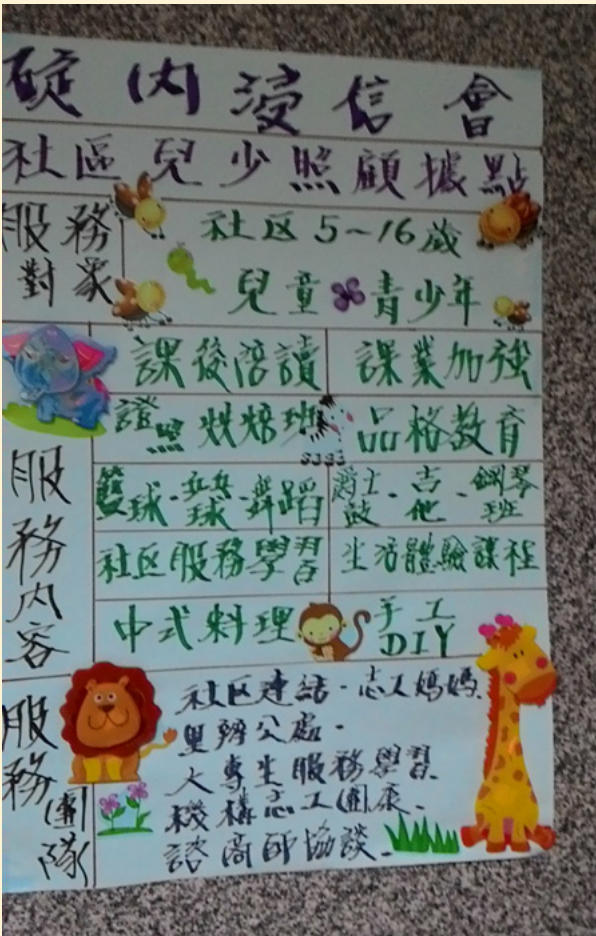 碇內浸信會
社區兒少照顧據點
服務對象
社区5~16歲
兒童 青少年
服務內容
課後陪讀 課業加強
證照烘焙班 品格教育
籃球·乒乓球·舞蹈 爵士鼓·吉他·鋼琴班
社区服務學習 生活體驗課程
中式料理 手工DIY
服務團隊
社区連結·志工媽媽
里辦公處·
大專生服務學習·
機構志工團康·
諮商師協談·